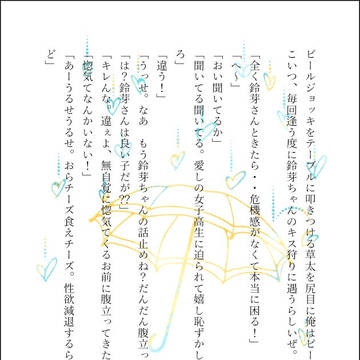 ビールジョッキをテーブルに叩きつける草太を尻目に俺はビ
こいつ、毎回逢う度に鈴芽ちゃんのキス狩りに遇うらしいぜ。
「全く鈴芽さんときたら・・危機感がなくて本当に困る！」
「へ〜」
「おい聞いてるか」
「聞いてる聞いてる。愛しの女子高生に迫られて嬉し恥ずかし
ろ」
「違う！」
「うっせ。なあ　もう鈴芽ちゃんの話止めね？だんだん腹立っ
「は？鈴芽さんは良い子だが⁇」
「キレんな。違ぇよ、無自覚に惚気てくるお前に腹立ってきた
「惚気てなんかいない！」
「あーうるせうるせ。おらチーズ食えチーズ。性欲減退するら
ど」